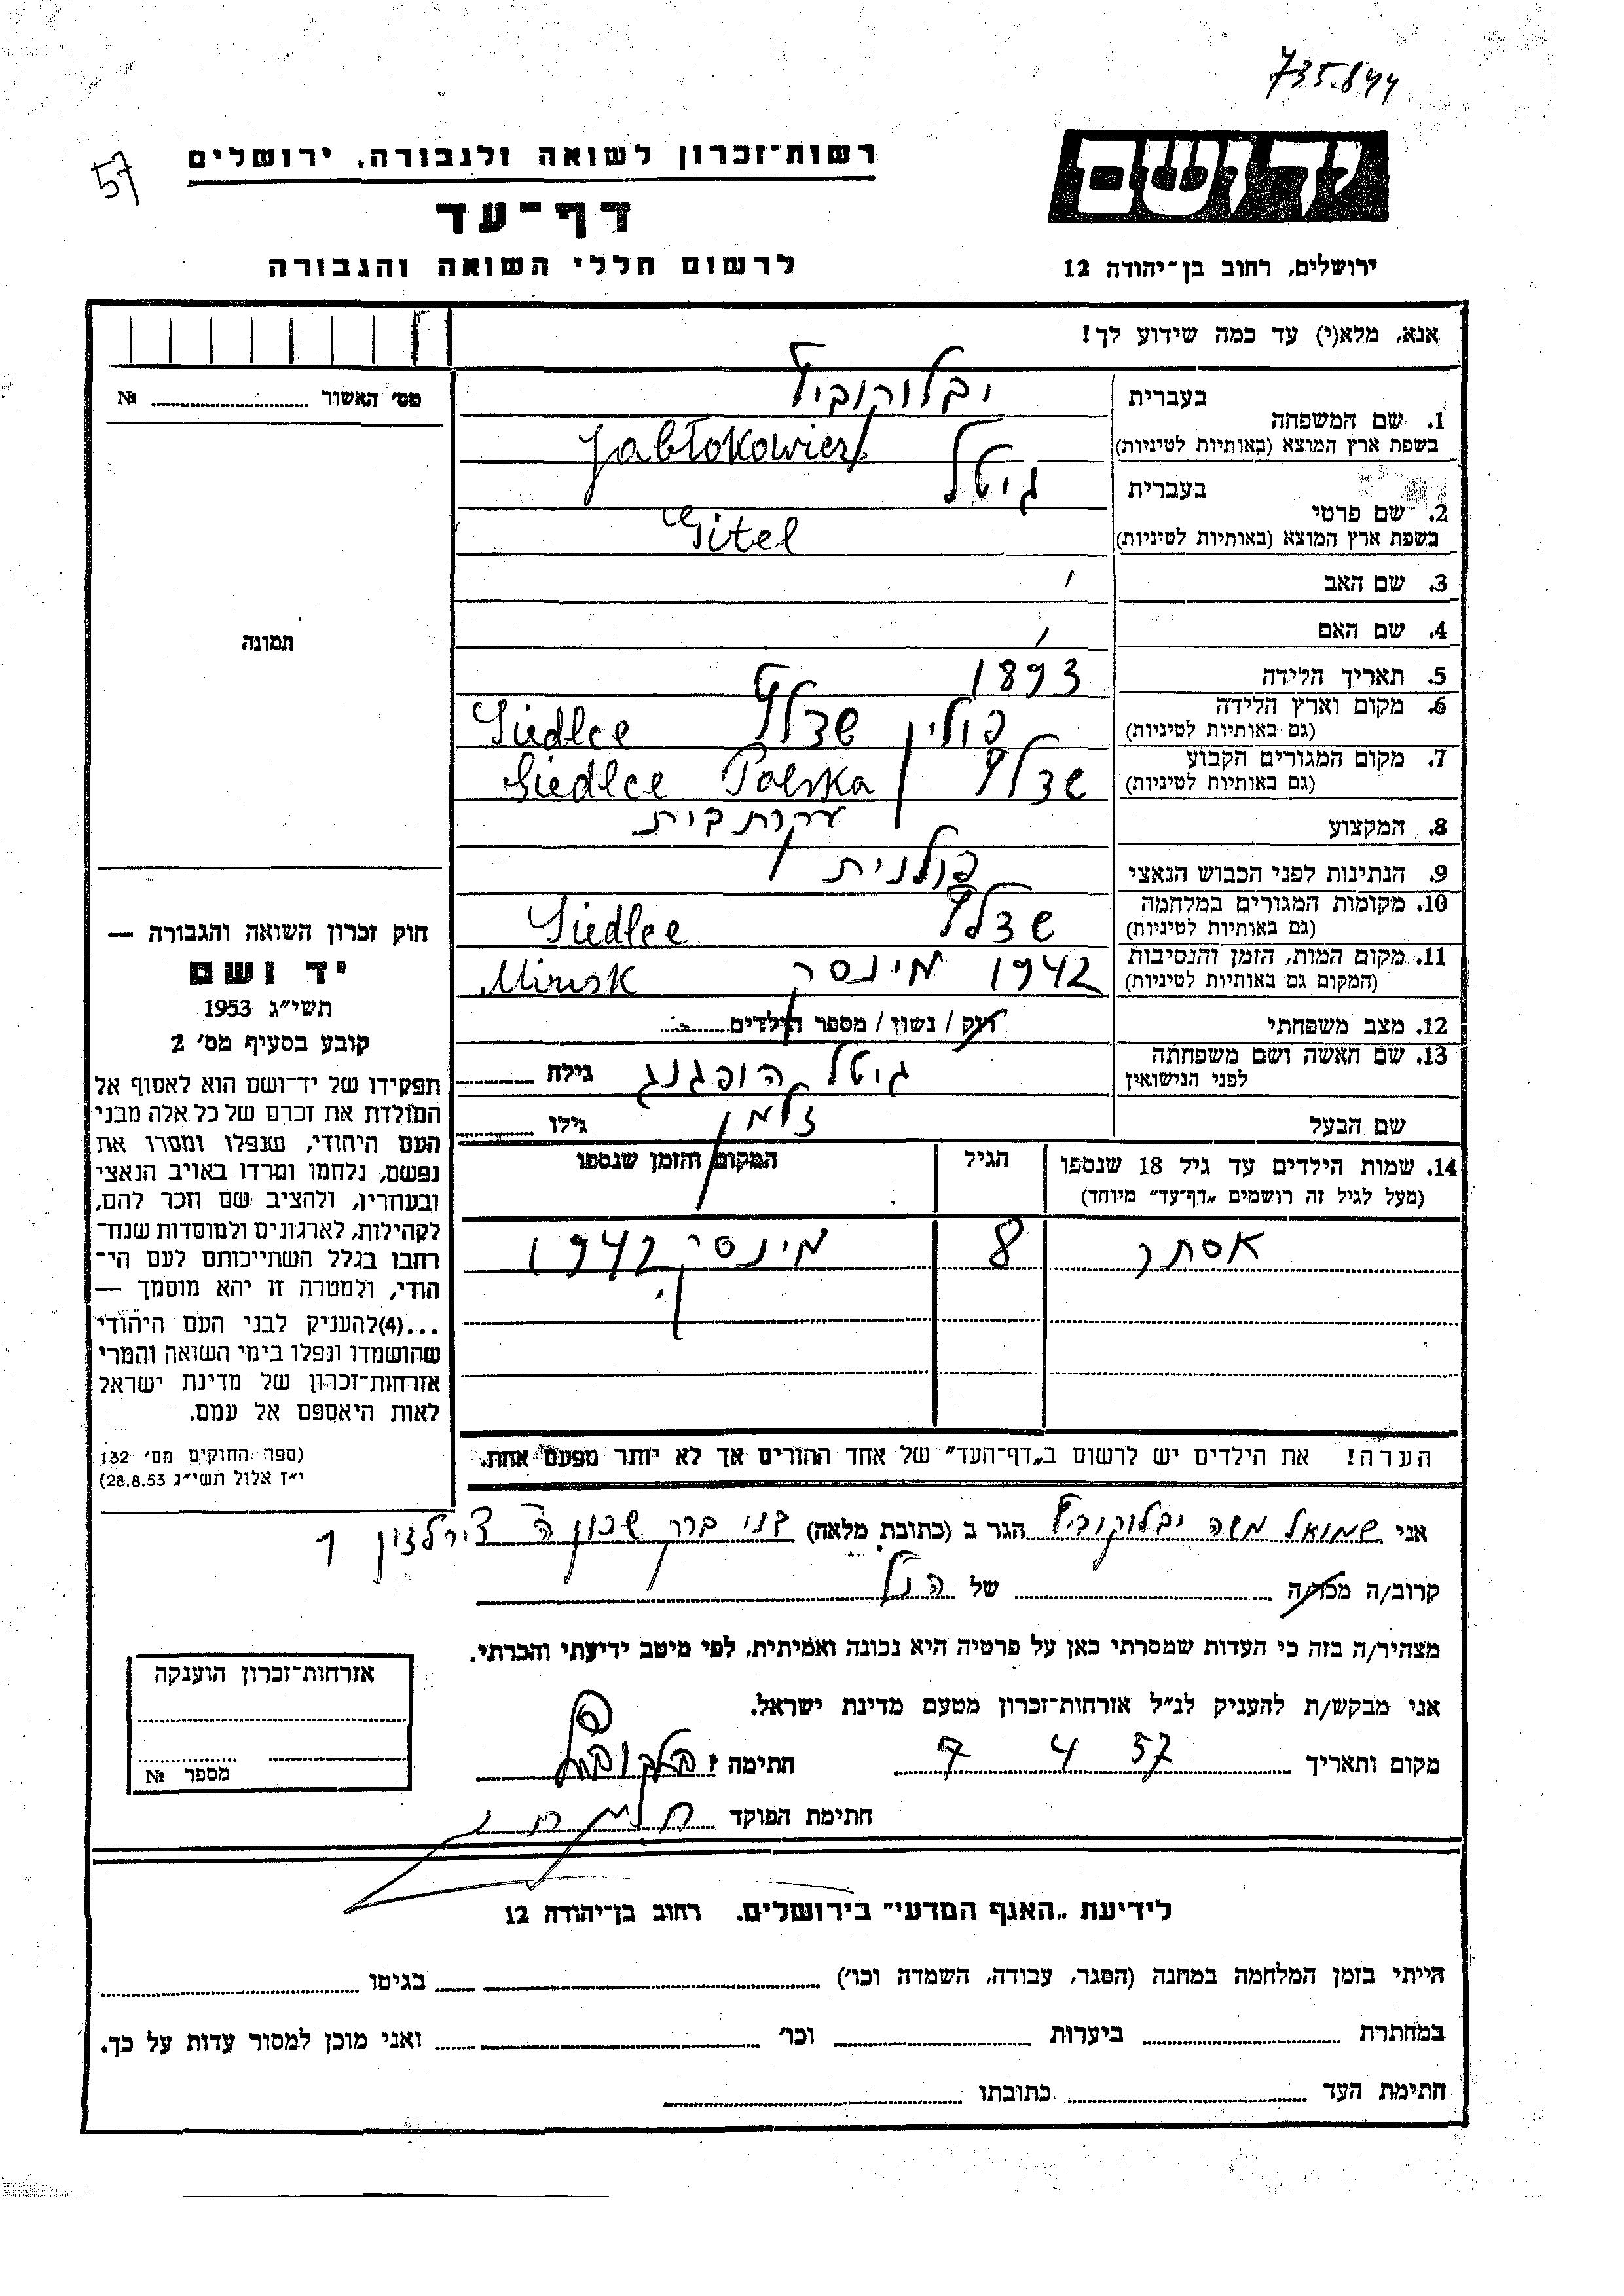 735.844
57
יד ושם
רשות־זכרון לשואה ולגבורה, ירושלים
דף־עד
לרשום חללי השואה והגבורה
ירושלים, רחוב בן־יהודה 12
אנא, מלא(י) עד כמה שידוע לך!
מס' האשור № 
תמונה
1. שם המשפחה בעברית יבלוקוביץ
בשפת ארץ המוצא (באותיות לטיניות) Jabłokowicz
2. שם פרטי בעברית גיטל
בשפת ארץ המוצא (באותיות לטיניות) Gitel
3. שם האב
4. שם האם
5. תאריך הלידה 1893
6. מקום וארץ הלידה (גם באותיות לטיניות) פולין שדלץ Siedlce
7. מקום המגורים הקבוע (גם באותיות לטיניות) שדלץ Siedlce Polska
8. המקצוע עקרת בית
9. הנתינות לפני הכבוש הנאצי פולנית
10. מקומות המגורים במלחמה (גם באותיות לטיניות) שדלץ Siedlce
11. מקום המות, הזמן והנסיבות (המקום גם באותיות לטיניות) 1942 מינסק Minsk
12. מצב משפחתי רוק / נשוי / מספר הילדים
13. שם האשה ושם משפחתה לפני הנישואין גיטל הופגנג גילה
שם הבעל זלמן גילו
14. שמות הילדים עד גיל 18 שנספו הגיל המקום והזמן שנספו
(מעל לגיל זה רושמים „דף־עד" מיוחד)
אסתר 8 מינסק 1942
הערה! את הילדים יש לרשום ב„דף־העד" של אחד ההורים אך לא יותר מפעם אחת.
חוק זכרון השואה והגבורה —
יד ושם
תשי"ג 1953
קובע בסעיף מס' 2
תפקידו של יד־ושם הוא לאסוף אל
המולדת את זכרם של כל אלה מבני
העם היהודי, שנפלו ומסרו את
נפשם, נלחמו ומרדו באויב הנאצי
ובעוזריו, ולהציב שם וזכר להם,
לקהילות, לארגונים ולמוסדות שנח־
רבו בגלל השתייכותם לעם הי־
הודי, ולמטרה זו יהא מוסמך —
...(4)להעניק לבני העם היהודי
שהושמדו ונפלו בימי השואה והמרי
אזרחות־זכרון של מדינת ישראל
לאות היאספם אל עמם.
(ספר החוקים מס' 132
י"ז אלול תשי"ג 28.8.53)
אני שמואל משה יבלוקוביץ הגר ב (כתובת מלאה) בני ברק שכון ה'
קרוב/ה מכר/ה של הנ"ל
מצהיר/ה בזה כי העדות שמסרתי כאן על פרטיה היא נכונה ואמיתית, לפי מיטב ידיעתי והכרתי.
אני מבקש/ת להעניק לנ"ל אזרחות־זכרון מטעם מדינת ישראל.
מקום ותאריך 7 4 57 חתימה
חתימת הפוקד
אזרחות־זכרון הוענקה
מספר №
לידיעת „האגף המדעי" בירושלים, רחוב בן־יהודה 12
הייתי בזמן המלחמה במחנה (הסגר, עבודה, השמדה וכו') בגיטו
במחתרת ביערות וכו' ואני מוכן למסור עדות על כך.
חתימת העד כתובתו